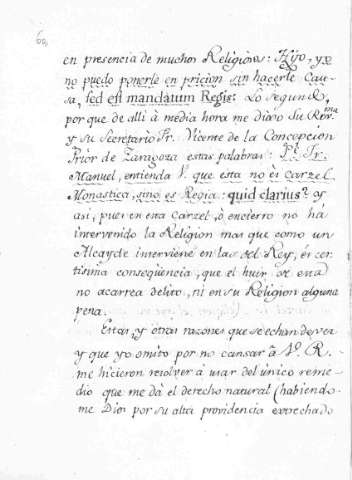 60
en presencia de muchos Religiosos: Hijo, yo
no puedo ponerle en pricion sin hacerle Cau-
sa, sed est mandatum Regis: Lo segundo,
porque de alli à media hora me dixo Su R.ma
y su Secretario Fr. Vicente de la Concepcion
Prior de Zaragoza estas palabras: P.e Fr.
Manuel, entienda V. que esta no es Carzel
Monastica, sino es Regia: quid clarius? y
asi, pues en esta Carzel, ò encierro no há
intervenido la Religion mas que como un
Alcayde interviene en las del Rey, es cer-
tisima conseqüencia, que el huir de ena
no acarrea delito, ni en su Religion alguna
pena.
Estas, y otras razones que se echan de ver
y que yo omito por no cansar à V. R.
me hicieron resolver á usar del único reme-
dio que me dà el derecho natural (habiendo-
me Dios por su alta providencia estrechado